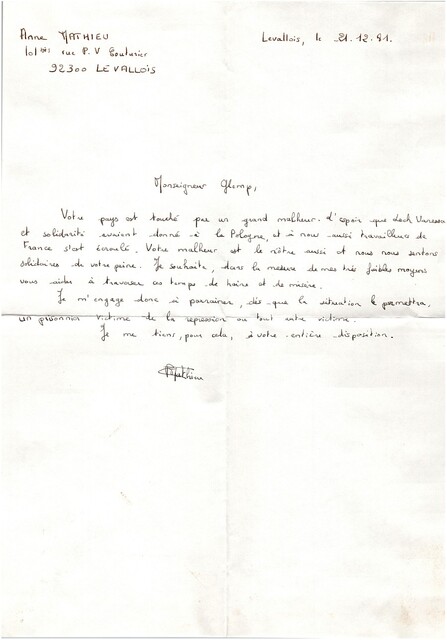 Anne MATHIEU
101 bis rue P. V Couturier
92300 LEVALLOIS
Levallois, le 21.12.81.
Monseigneur Glemp,
Votre pays est touché par un grand malheur. L'espoir que Lech Walesa
et solidarité avaient donné à la Pologne, et à nous aussi travailleurs de
France s'est écroulé. Votre malheur est le nôtre aussi et nous nous sentons
solidaires de votre peine. Je souhaite, dans la mesure de mes très faibles moyens
vous aider à traverser ce temps de haine et de misère.
Je m'engage donc à parrainer, dès que la situation le permettra,
un prisonnier victime de la repression ou tout autre victime.
Je me tiens, pour cela, à votre entière disposition.